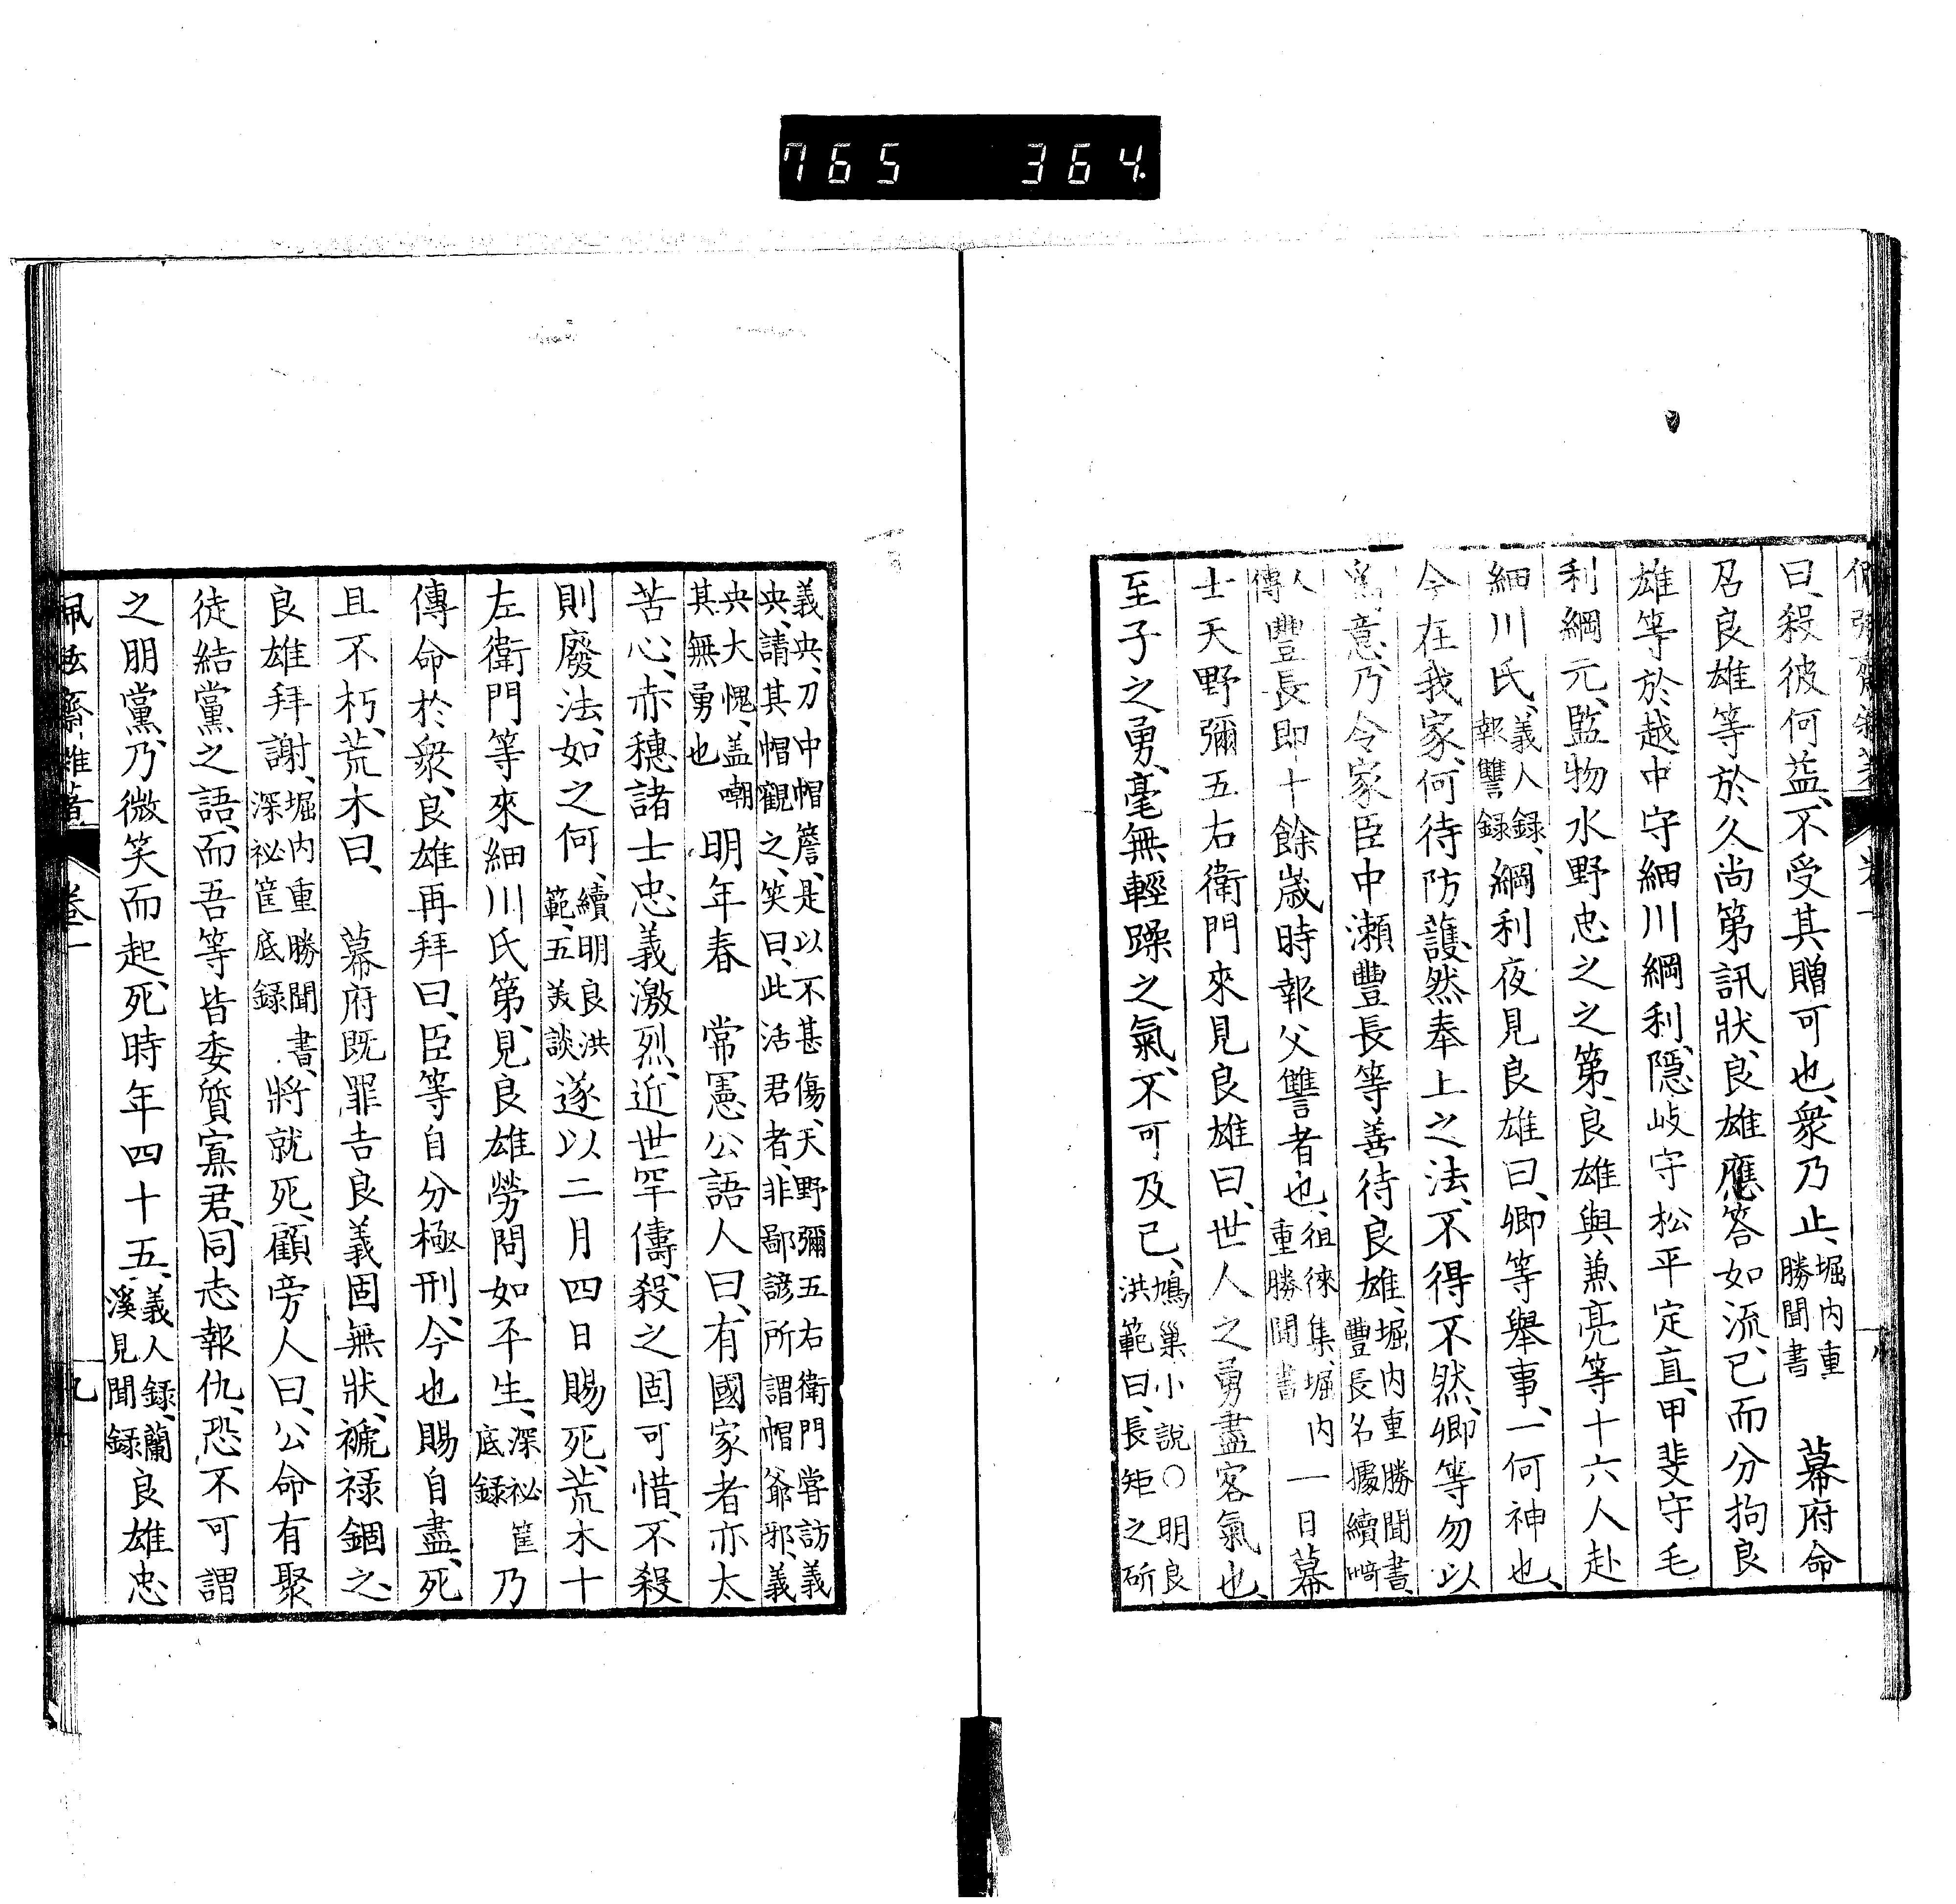 765 364.
曰、殺彼何益、不受其贈可也、衆乃止、堀内重勝聞書 幕府命
召良雄等於久尚第訊狀、良雄應答如流、已而分拘良
雄等於越中守細川綱利、隱岐守松平定直、甲斐守毛
利綱元、監物水野忠之之第、良雄與兼亮等十六人赴
細川氏、義人録、報讐録、綱利夜見良雄曰、卿等舉事、一何神也、
今在我家、何待防護、然奉上之法、不得不然、卿等勿以
爲意、乃令家臣中瀬豐長等善待良雄、堀内重勝聞書、豐長名據續
人傳 豐長即十餘歳時報父讐者也、徂徠集、堀内重勝聞書 一日幕
士天野彌五右衛門來見良雄曰、世人之勇盡客氣也、
至子之勇、毫無輕躁之氣、不可及已、鳩巢小說○明良洪範曰、長矩之斫
義央、刀中帽簷、是以不甚傷、天野彌五右衛門嘗訪義央、請其帽觀之、笑曰、此活君者、非鄙諺所謂帽爺邪、義
央大愧、盖嘲其無勇也 明年春 常憲公語人曰、有國家者亦太
苦心、赤穗諸士忠義激烈、近世罕儔、殺之固可惜、不殺
則廢法、如之何、續明良洪範、五美談 遂以二月四日賜死、荒木十
左衛門等來細川氏第、見良雄勞問如平生、深祕筐底録 乃
傳命於衆、良雄再拜曰、臣等自分極刑、今也賜自盡、死
且不朽、荒木曰、 幕府既罪吉良義固無狀、褫禄錮之、
良雄拜謝、堀内重勝聞書、深祕筐底録 將就死、顧旁人曰、公命有聚
徒結黨之語、而吾等皆委質寡君、同志報仇、恐不可謂
之朋黨、乃微笑而起、死時年四十五、義人録、蘭溪見聞録 良雄忠
佩弦齋雜著 卷一 九